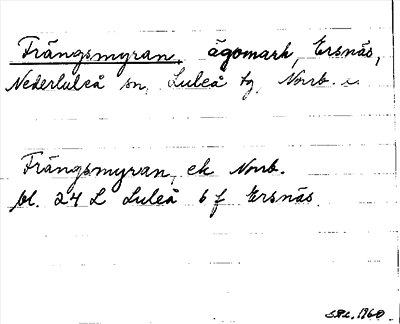 Trängsmyran, ägomark, Ersnäs,
Nederluleå sn, Luleå tg, Norrb. l.
Trängsmyran, ek Norrb.
bl. 24 L Luleå 6 f Ersnäs.
1960